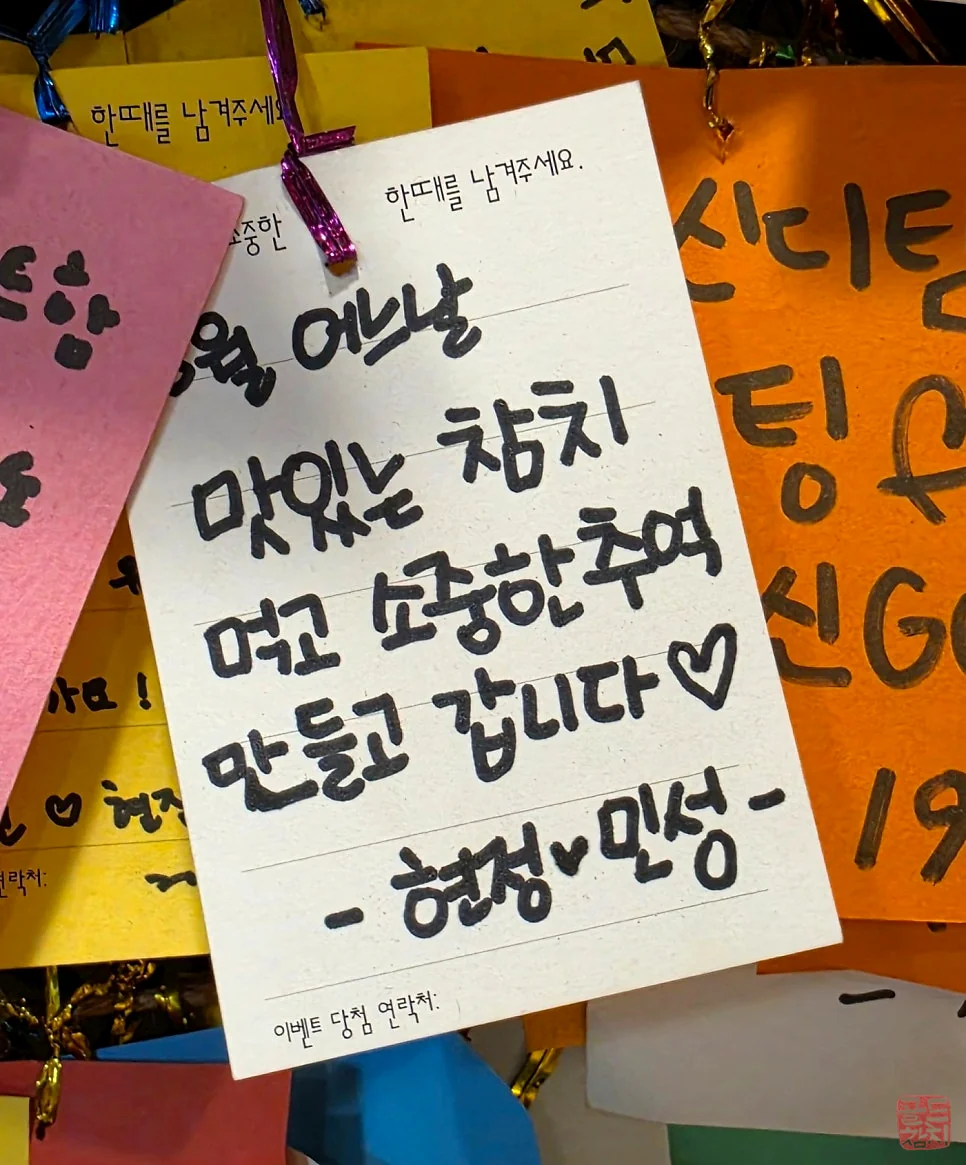 한때를 남겨주세요
소중한 한때를 남겨주세요.
월 어느날
맛있는 참치
먹고 소중한 추억
만들고 갑니다♡
- 현정♥민성 -
이벤트 당첨 연락처:
신디팀
팅
신GO
19
가요!
♡ 현정
연락처: